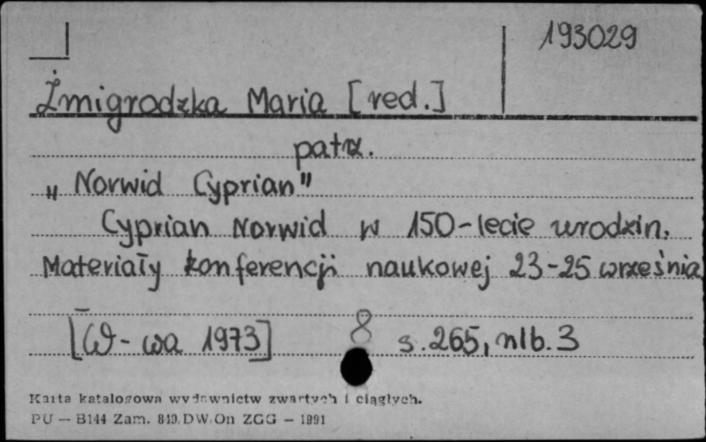 193029
Żmigrodzka Maria [red.]
patrz.
„Norwid Cyprian"
Cyprian Norwid w 150-lecie urodzin.
Materiały konferencji naukowej 23-25 września
[W-wa 1973] 8 s. 265, nlb. 3
Karta katalogowa wydawnictw zwartych i ciągłych.
PU — B144 Zam. 849. DW.On ZGG — 1991